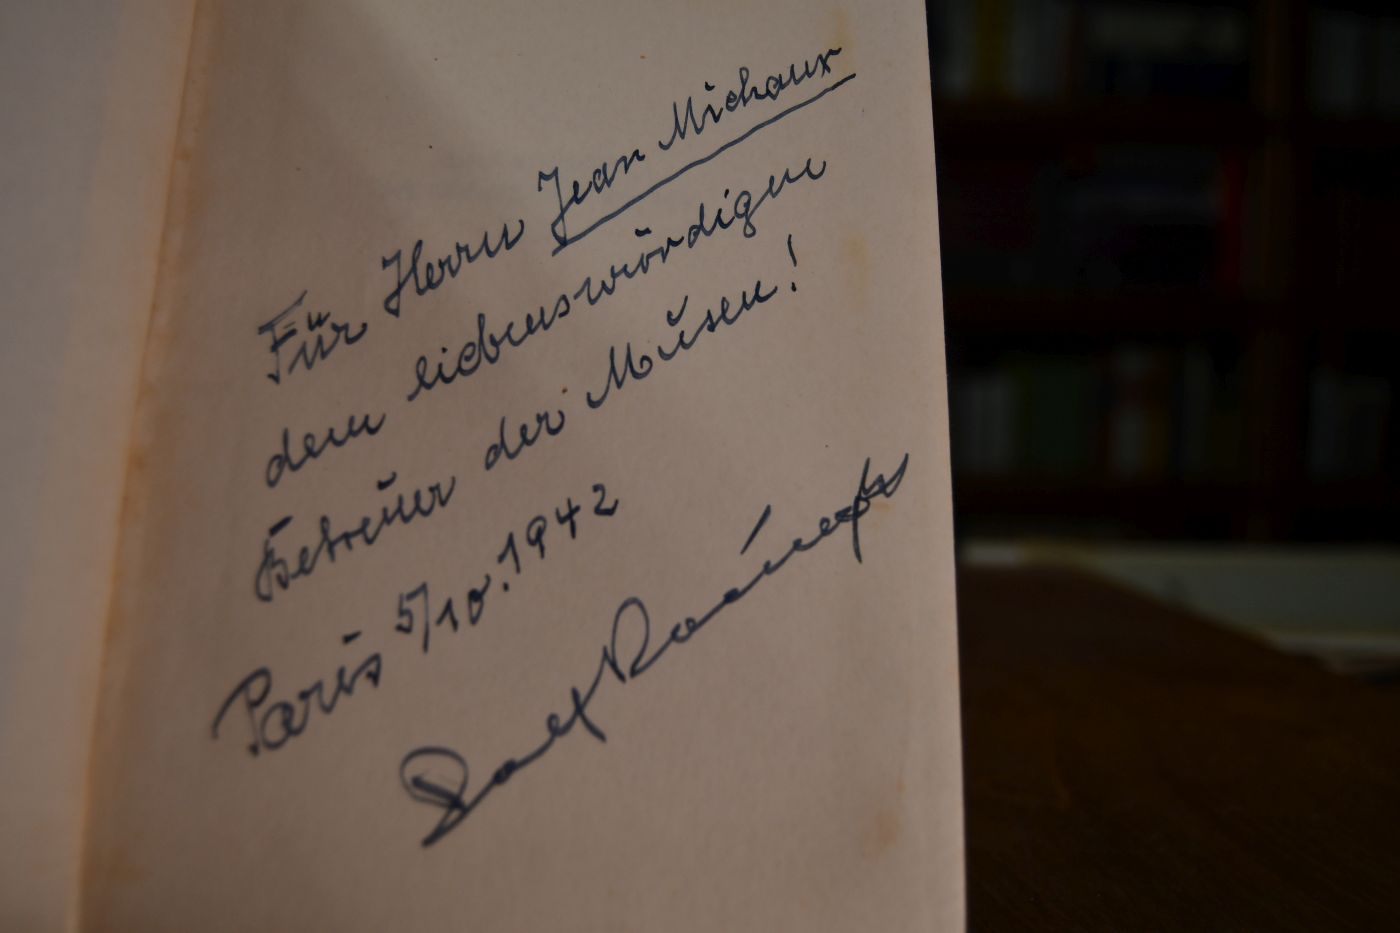 Für Herrn Jean Michaux
dem liebenswürdigen
Betreuer der Musen!
Paris 5/10.1942